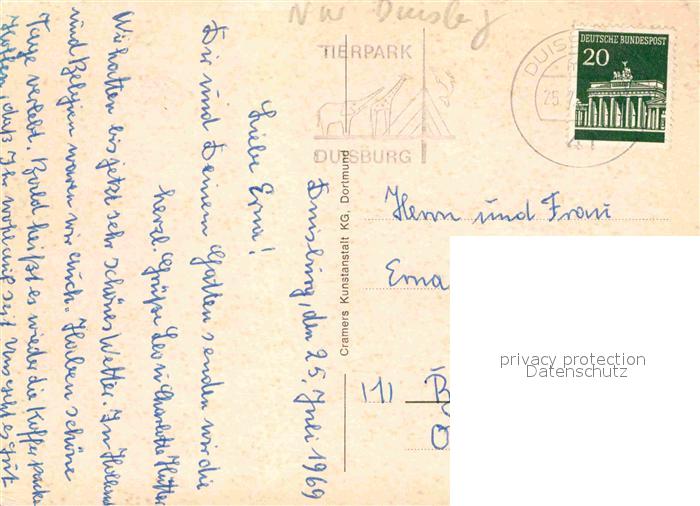 NW Duisbg
TIERPARK
DUISBURG
DUIS
25.7
41
DEUTSCHE BUNDESPOST
20
Duisburg, den 25. Juli 1969
Liebe Erna!
Dir und Deinem Gatten senden wir die
herzl. Grüße Leo u. Charlotte
Wir hatten bis jetzt sehr schönes Wetter. In Holland
und Belgien waren wir auch. Haben schöne
Tage verlebt. Bald heißt es wieder die Koffer packen
Hoffen, daß Ihr wohlauf seit. Uns geht es gut
Cramers Kunstanstalt KG, Dortmund
Herrn und Frau
Erna
111 B
O
privacy protection
Datenschutz